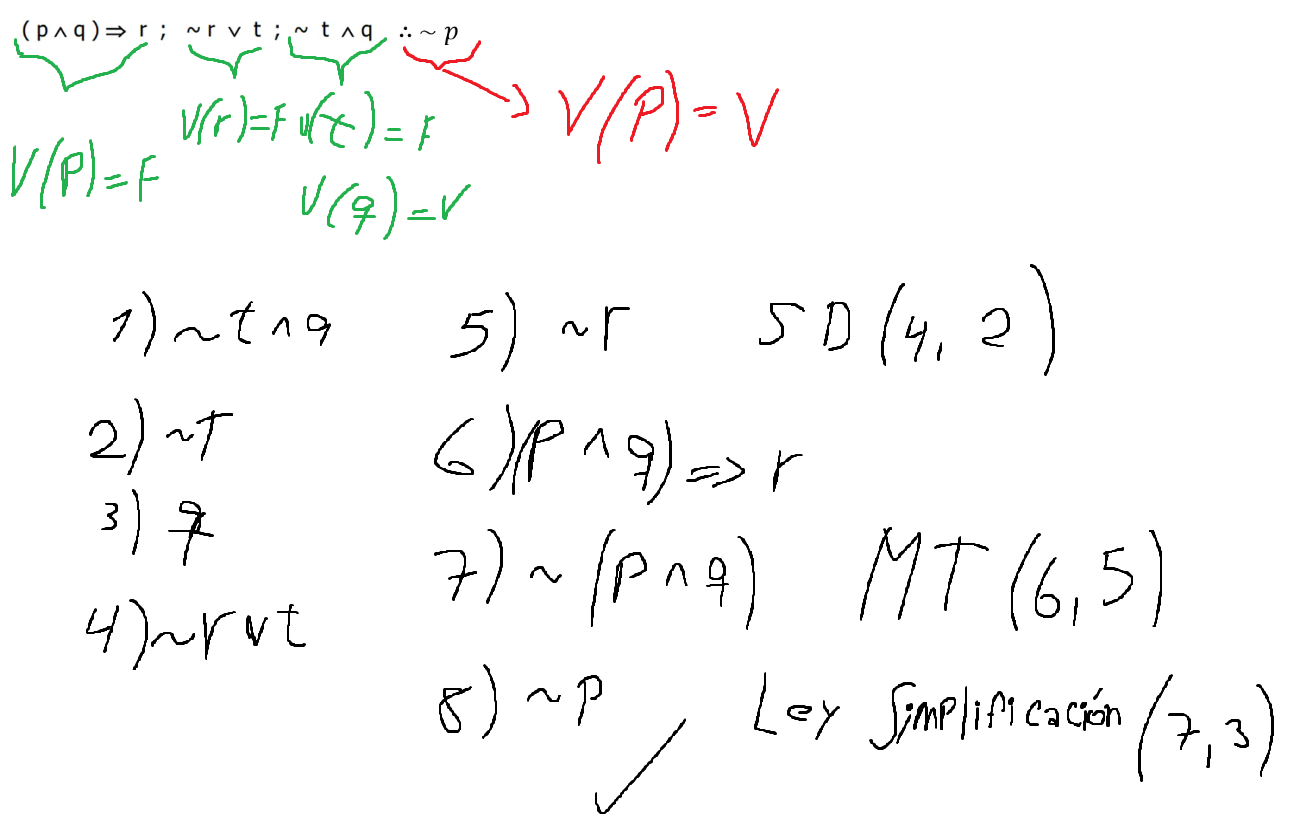 (p∧q)⇒ r ; ~r ∨ t ; ~ t ∧q ∴ ~ p
V(P)=F
V(r)=F V(t)=F
V(q)=V
V(P)=V
1) ~t ∧ q
2) ~T
3) q
4) ~r ∨ t
5) ~r SD (4, 2)
6) (P ∧ q) => r
7) ~ (P ∧ q) MT (6, 5)
8) ~P ✓ Ley Simplificación (7, 3)